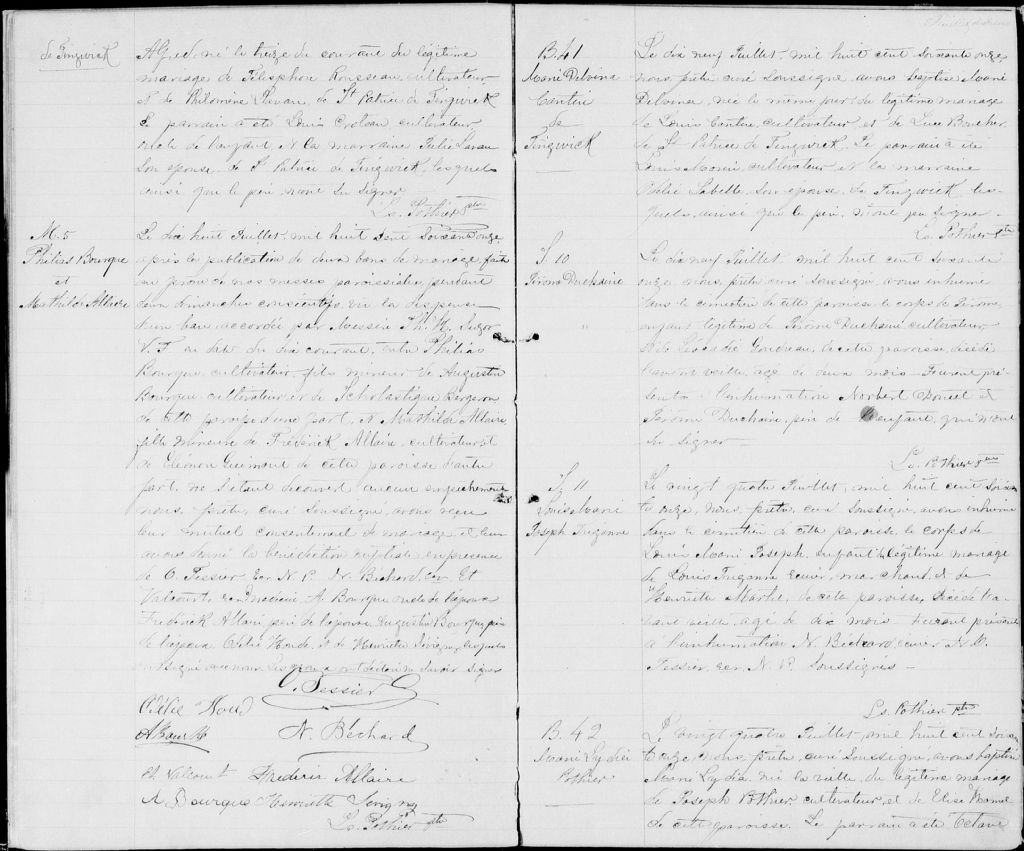 de Tingwick
Alfred, né le treize du courant du légitime
mariage de Télesphore Rousseau, cultivateur
et de Philomène Lavau, de St Patrice de Tingwick
Le parrain a été Louis Croteau, cultivateur
oncle de l'enfant, et la marraine Julie Lavau
son épouse, de St Patrice de Tingwick, lesquels
ainsi que le père n'ont su signer
Ls. Pothier ptre
M. 5
Philias Bourque
et
Mathilde Allaire
Le dix huit Juillet, mil huit cent soixante onze,
après la publication de deux bans de mariage faite
au prône de nos messes paroissiales, pendant
deux dimanches consécutifs, vu la dispense
d'un ban accordée par Messire Ph. H. Suzor
V. F. en date du dix courant, entre Philias
Bourque, cultivateur, fils mineur de Augustin
Bourque cultivateur et de Scholastique Bergeron
de cette paroisse d'une part, et Mathilde Allaire
fille mineure de Frédérick Allaire, cultivateur et
de Eléonore Guimont de cette paroisse d'autre
part, ne s'étant découvert aucun empêchement
nous, prêtre, curé soussigné, avons reçu
leur mutuel consentement de mariage et leur
avons donné la bénédiction nuptiale en présence
de O. Tessier Ecr N. P. N. Béchard, ecr. Et
Valcourt, ecr médecin, A. Bourque oncle de l'époux
Frederick Allaire, père de l'épouse, Augustin Bourque père
de l'époux Odélie Houde, et de Henriette Sévigny, lesquels
ont signé avec nous. Les époux ont déclaré ne savoir signer
O. Tessier
Odélie Houd
N. Béchard
Et Valcourt Frederic Allaire
A. Bourque Henriette Sevigny
Ls. Pothier ptre
B. 41
Marie Delvina
Cantin
de
Tingwick
Le dix neuf Juillet, mil huit cent soixante onze,
nous, prêtre, curé soussigné, avons baptisé Marie
Delvina, née le même jour, du légitime mariage
de Louis Cantin, cultivateur, et de Luce Boucher,
de St Patrice de Tingwick. Le parrain a été
Louis Morin, cultivateur, et la marraine
Labelle, son épouse, de Tingwick les-
quels, ainsi que le père, n'ont pu signer.
Ls. Pothier ptre
S. 10
Jérôme Duchaine
Le dix neuf Juillet mil huit cent soixante
onze, nous, prêtre, curé soussigné, avons inhumé
dans le cimetière de cette paroisse le corps de Jérôme,
enfant légitime de Jérôme Duchaine cultivateur,
et de Léocadie Gondreau, de cette paroisse, décédé
l'avant veille, agé de deux mois. Furent pré-
sents à l'inhumation Norbert et
Jérôme Duchaine, père de l'enfant, qui n'ont
su signer
Ls. Pothier ptre
S. 11
Louis Marie
Joseph Trézanne
Le vingt quatre Juillet, mil huit cent soixan
te onze, nous, prêtre, curé soussigné, avons inhumé
dans le cimetière de cette paroisse, le corps de
Louis Marie Joseph, enfant du légitime mariage
de Louis Trézanne écuier, marchand, et de
Henriette Martel, de cette paroisse, décédé l'a-
vant veille, agé de dix mois. Furent présents
à l'inhumation N. Béchard, écuier et O.
Tessier, ecr, N. P. soussignés
Ls. Pothier ptre
B. 42
Marie Lydia
Pothier
Le vingt quatre Juillet, mil huit cent soixan
te onze, nous, prêtre, curé soussigné, avons baptisé
Marie Lydia, née la veille, du légitime mariage
de Joseph Pothier, cultivateur, et de Elise
de cette paroisse. Le parrain a été Octave